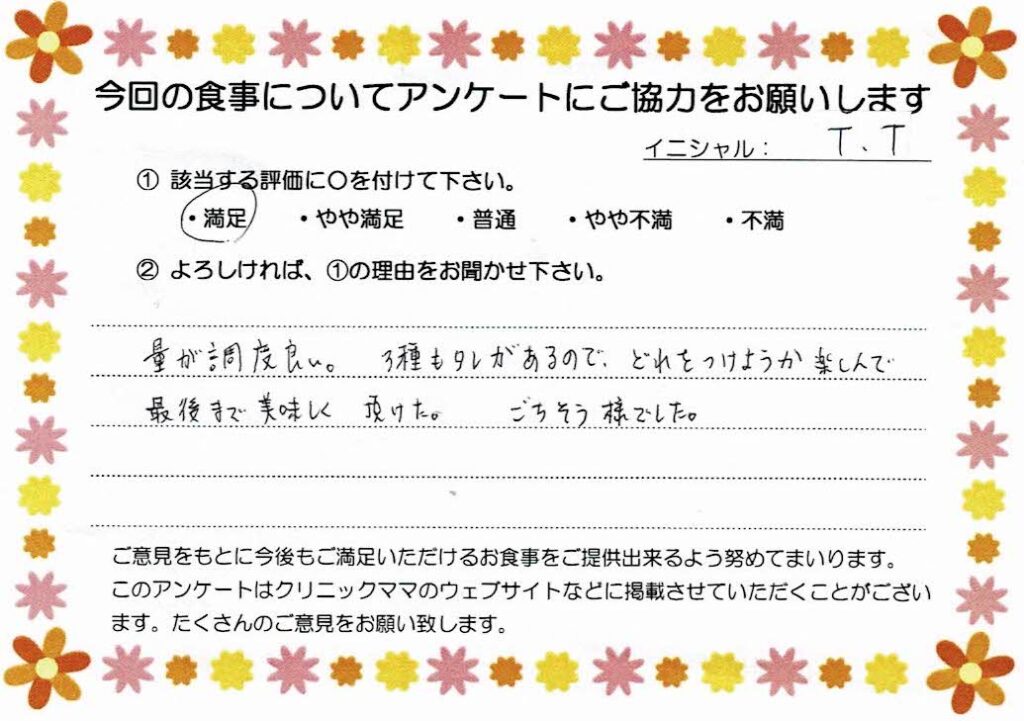 今回の食事についてアンケートにご協力をお願いします
イニシャル： T.T
① 該当する評価に○を付けて下さい。
・満足 ・やや満足 ・普通 ・やや不満 ・不満
② よろしければ、①の理由をお聞かせ下さい。
量が調度良い。 3種もタレがあるので、どれをつけようか楽しんで
最後まで美味しく 頂けた。 ごちそう様でした。
ご意見をもとに今後もご満足いただけるお食事をご提供出来るよう努めてまいります。
このアンケートはクリニックママのウェブサイトなどに掲載させていただくことがござい
ます。たくさんのご意見をお願い致します。